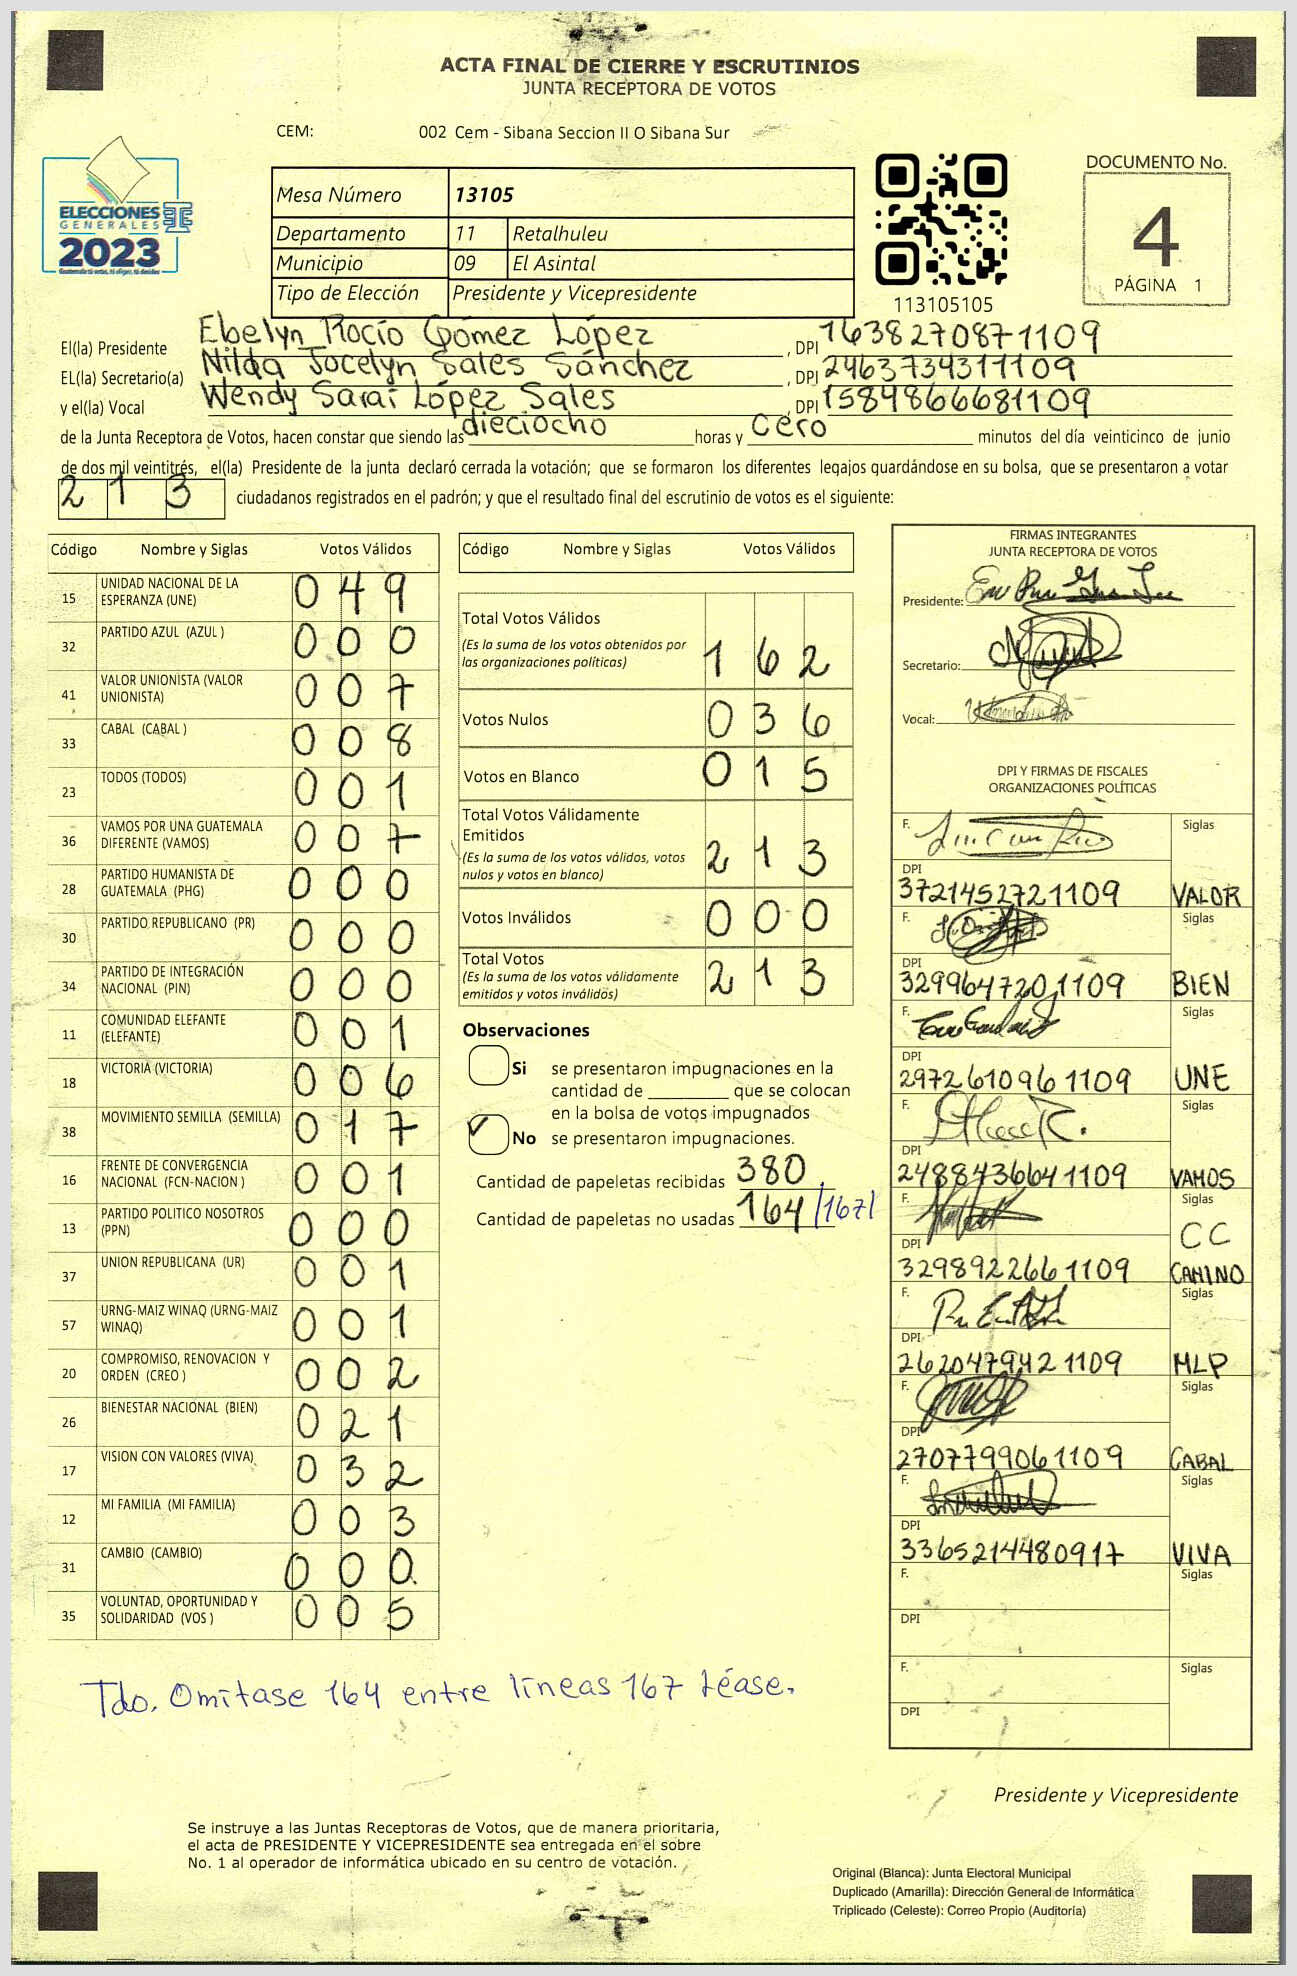 ACTA FINAL DE CIERRE Y ESCRUTINIOS
JUNTA RECEPTORA DE VOTOS
CEM: 002 Cem - Sibana Seccion II O Sibana Sur
ELECCIONES
GENERALES
2023
Mesa Número 13105
Departamento 11 Retalhuleu
Municipio 09 El Asintal
Tipo de Elección Presidente y Vicepresidente
113105105
DOCUMENTO No.
4
PÁGINA 1
El(la) Presidente Ebelyn Rocío Gómez López, DPI 1638270871109
EL(la) Secretario(a) Nilda Jocelyn Sales Sánchez, DPI 2463734311109
y el(la) Vocal Wendy Saraí López Sales, DPI 1584866681109
de la Junta Receptora de Votos, hacen constar que siendo las dieciocho horas y cero minutos del día veinticinco de junio
de dos mil veintitrés, el(la) Presidente de la junta declaró cerrada la votación; que se formaron los diferentes legajos guardándose en su bolsa, que se presentaron a votar
213 ciudadanos registrados en el padrón; y que el resultado final del escrutinio de votos es el siguiente:
Código Nombre y Siglas Votos Válidos
15 UNIDAD NACIONAL DE LA ESPERANZA (UNE) 049
32 PARTIDO AZUL (AZUL ) 000
41 VALOR UNIONISTA (VALOR UNIONISTA) 007
33 CABAL (CABAL ) 008
23 TODOS (TODOS) 001
36 VAMOS POR UNA GUATEMALA DIFERENTE (VAMOS) 007
28 PARTIDO HUMANISTA DE GUATEMALA (PHG) 000
30 PARTIDO REPUBLICANO (PR) 000
34 PARTIDO DE INTEGRACIÓN NACIONAL (PIN) 000
11 COMUNIDAD ELEFANTE (ELEFANTE) 001
18 VICTORIA (VICTORIA) 006
38 MOVIMIENTO SEMILLA (SEMILLA) 017
16 FRENTE DE CONVERGENCIA NACIONAL (FCN-NACION ) 001
13 PARTIDO POLITICO NOSOTROS (PPN) 000
37 UNION REPUBLICANA (UR) 001
57 URNG-MAIZ WINAQ (URNG-MAIZ WINAQ) 001
20 COMPROMISO, RENOVACION Y ORDEN (CREO ) 002
26 BIENESTAR NACIONAL (BIEN) 021
17 VISION CON VALORES (VIVA) 032
12 MI FAMILIA (MI FAMILIA) 003
31 CAMBIO (CAMBIO) 000
35 VOLUNTAD, OPORTUNIDAD Y SOLIDARIDAD (VOS ) 005
Código Nombre y Siglas Votos Válidos
Total Votos Válidos 162
(Es la suma de los votos obtenidos por
las organizaciones políticas)
Votos Nulos 036
Votos en Blanco 015
Total Votos Válidamente
Emitidos 213
(Es la suma de los votos válidos, votos
nulos y votos en blanco)
Votos Inválidos 000
Total Votos 213
(Es la suma de los votos válidamente
emitidos y votos inválidos)
Observaciones
Si se presentaron impugnaciones en la
cantidad de ________ que se colocan
en la bolsa de votos impugnados
No se presentaron impugnaciones.
Cantidad de papeletas recibidas 380
Cantidad de papeletas no usadas 164 /167/
FIRMAS INTEGRANTES
JUNTA RECEPTORA DE VOTOS
Presidente:
Secretario:
Vocal:
DPI Y FIRMAS DE FISCALES
ORGANIZACIONES POLÍTICAS
F. Siglas
DPI
3721452721109 VALOR
F. Siglas
DPI
3299647201109 BIEN
F. Siglas
DPI
2972610961109 UNE
F. Siglas
DPI
2488436641109 VAMOS
F. Siglas
CC
DPI
3298922661109 CAMINO
F. Siglas
DPI
2620479421109 MLP
F. Siglas
DPI
2707799061109 CABAL
F. Siglas
DPI
3365214480917 VIVA
F. Siglas
DPI
F. Siglas
DPI
Tdo. Omítase 164 entre líneas 167 Léase.
Presidente y Vicepresidente
Se instruye a las Juntas Receptoras de Votos, que de manera prioritaria,
el acta de PRESIDENTE Y VICEPRESIDENTE sea entregada en el sobre
No. 1 al operador de informática ubicado en su centro de votación.
Original (Blanca): Junta Electoral Municipal
Duplicado (Amarilla): Dirección General de Informática
Triplicado (Celeste): Correo Propio (Auditoría)